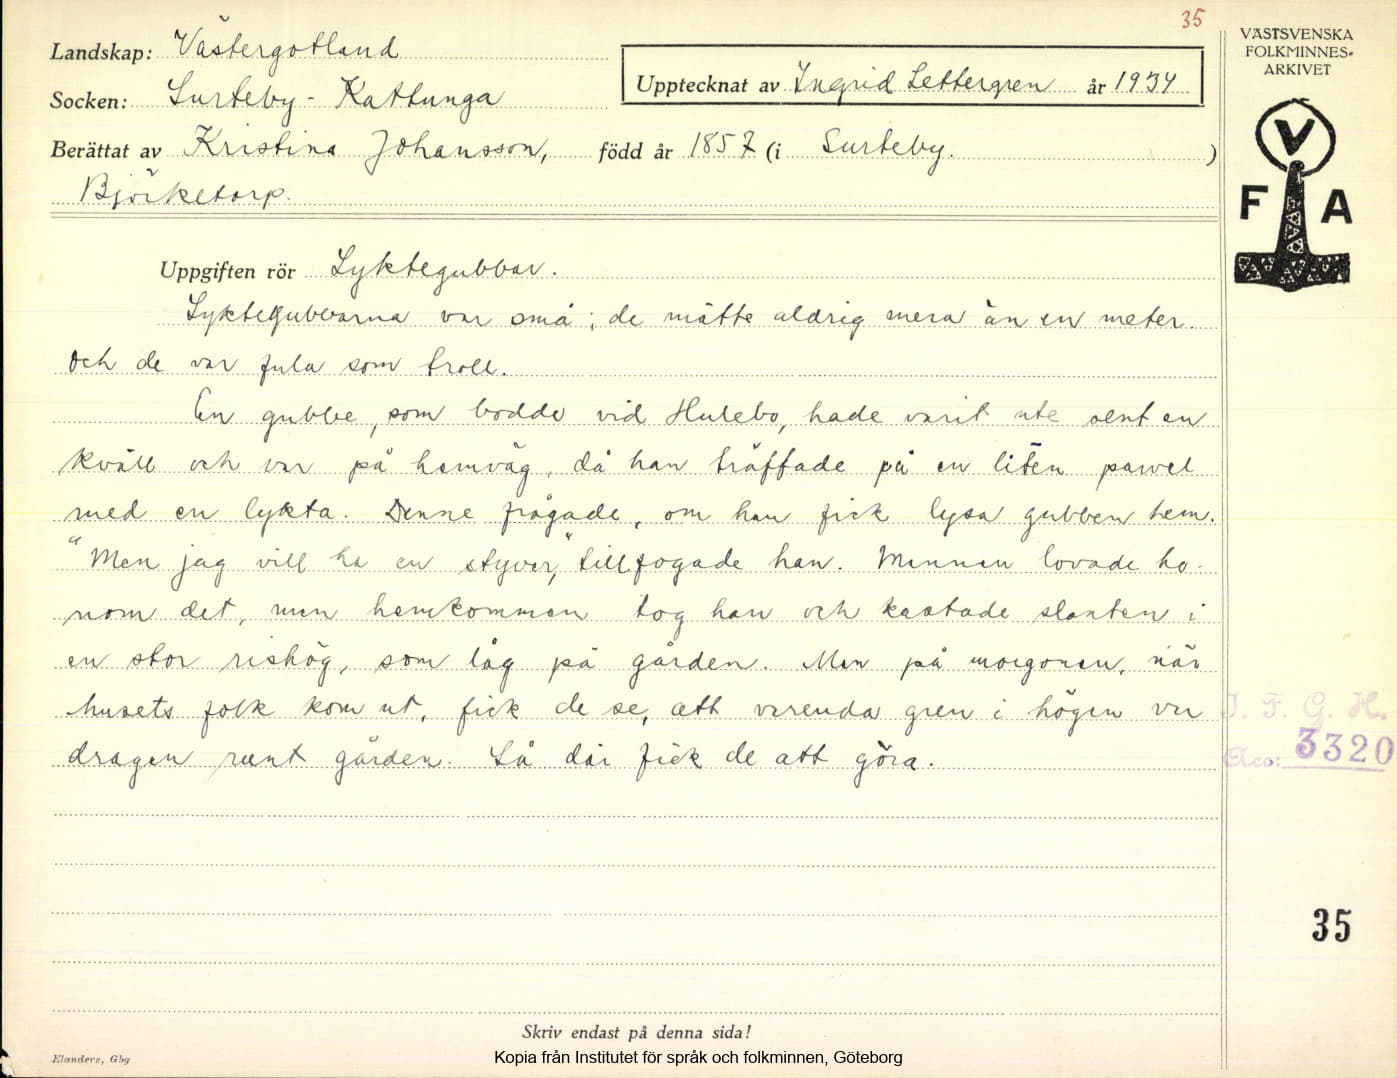 35
Landskap: Västergötland
Socken: Surteby-Kattunga
Upptecknat av Ingrid Settergren år 1934
Berättat av Kristina Johansson, född år 1857 (i Surteby. )
Björketorp.
VÄSTSVENSKA
FOLKMINNES-
ARKIVET
V
F A
Uppgiften rör Lyktegubbar.
Lyktegubbarna var små; de mätte aldrig mera än en meter.
och de var fula som troll.
En gubbe, som bodde vid Hulebo, hade varit ute sent en
kväll och var på hemväg, då han träffade på en liten parvel
med en lykta. Denne frågade, om han fick lysa gubben hem.
"Men jag vill ha en styver," tillfogade han. Mannen lovade ho-
nom det, men hemkommen tog han och kastade slanten i
en stor rishög, som låg på gården. Men på morgonen, när
husets folk kom ut, fick de se, att varenda gren i högen var
dragen runt gården. Så där fick de att göra.
I. F. G. H.
Acc: 3320
35
Skriv endast på denna sida!
Elanders, Gbg
Kopia från Institutet för språk och folkminnen, Göteborg